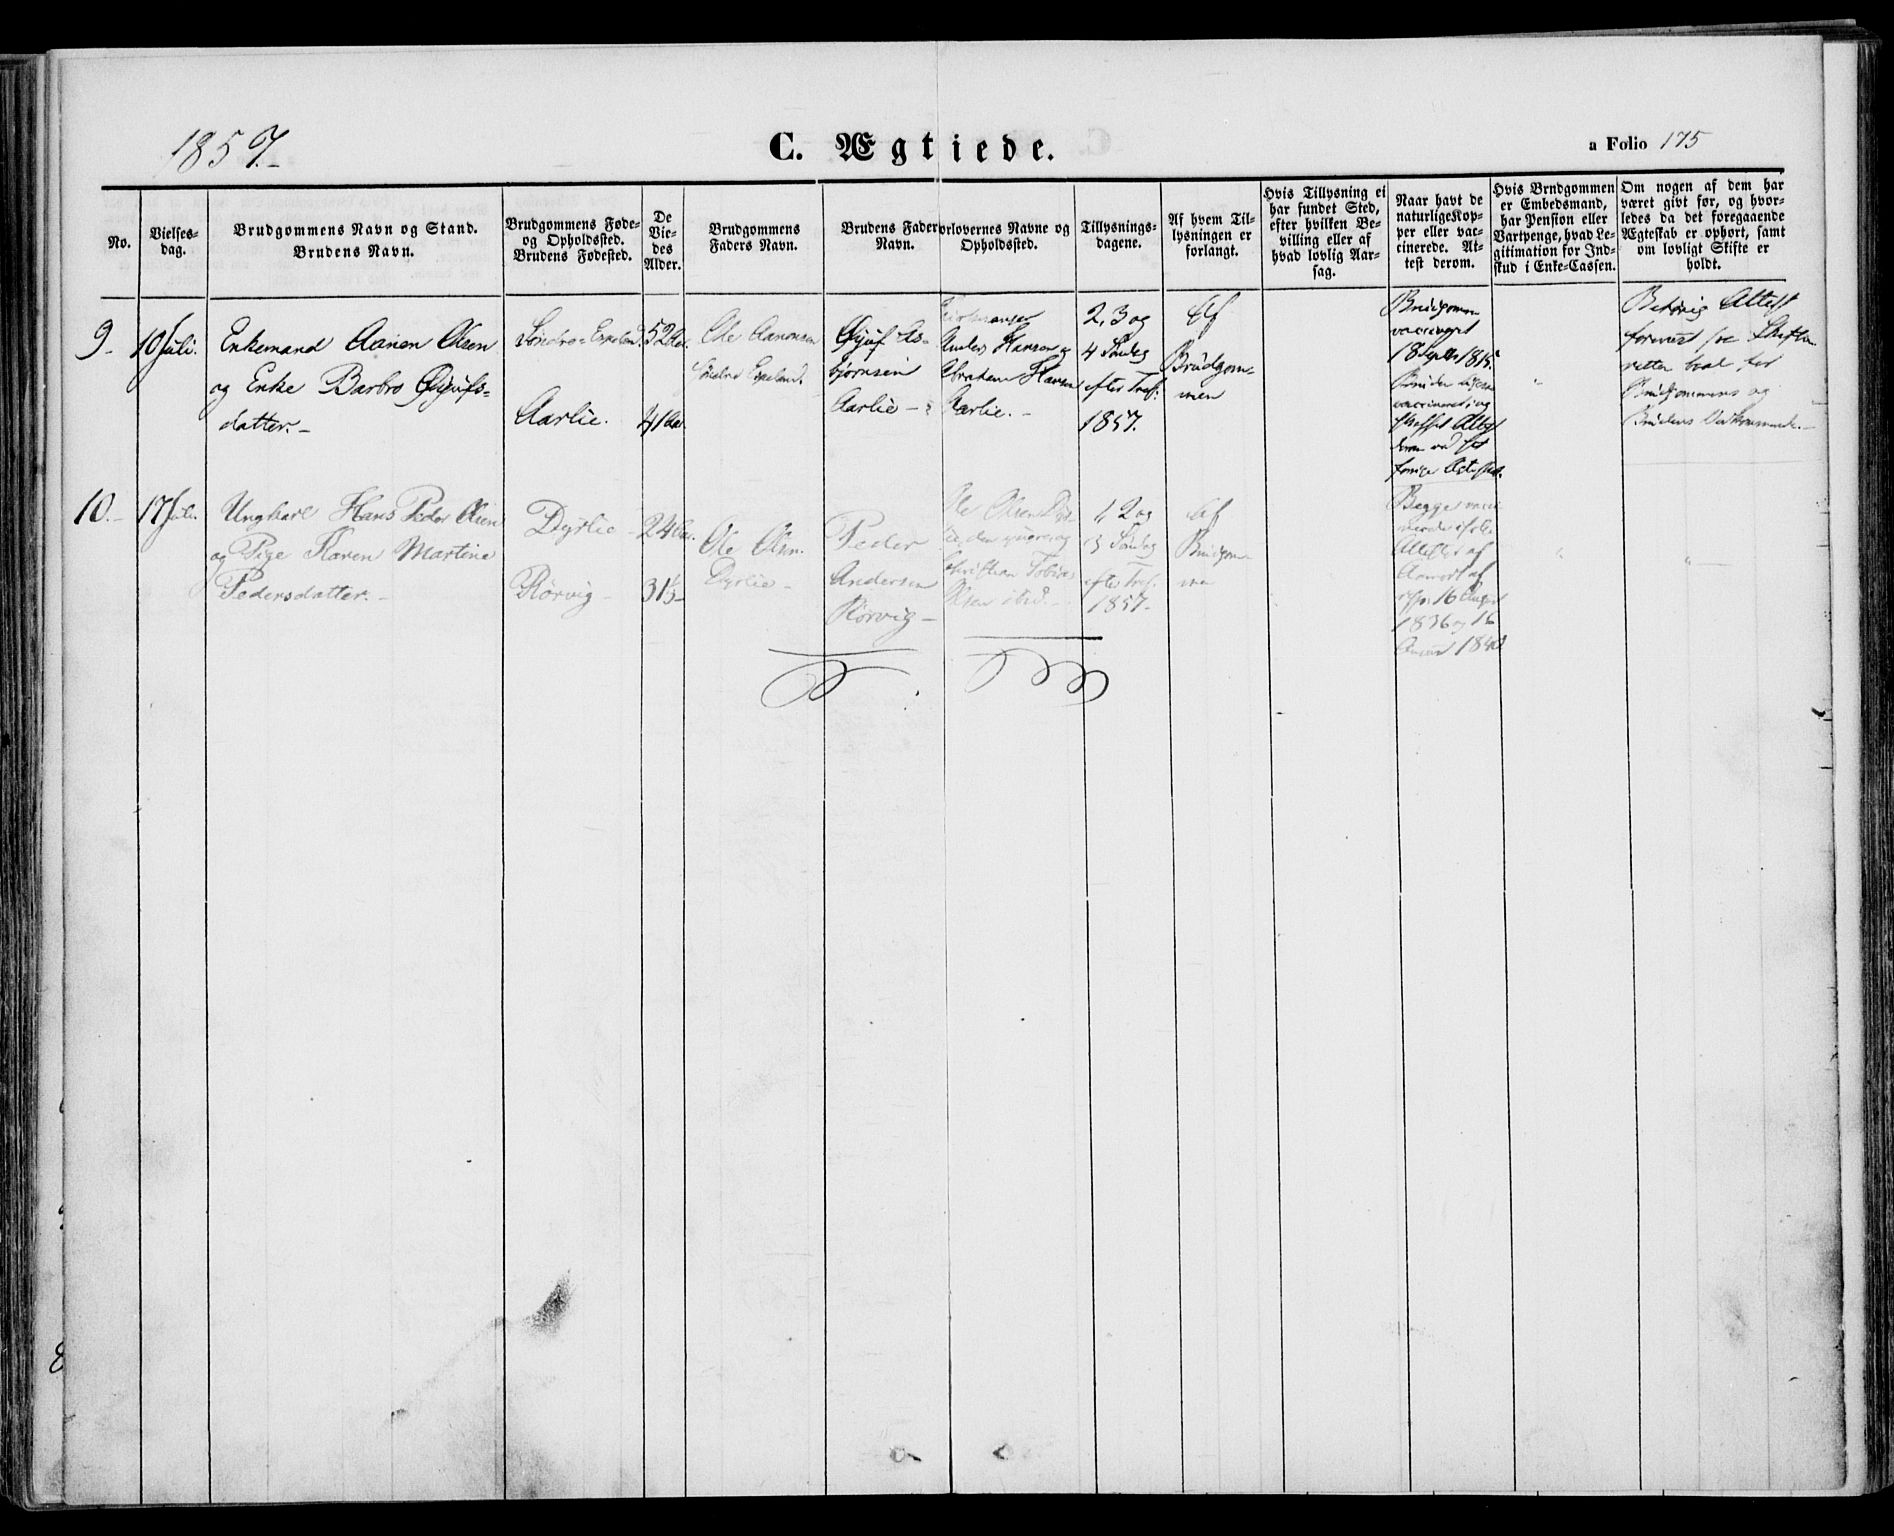 1857.-
C. Ægtiede.
a Folio 175
No.
Vielses-
dag.
Brudgommens Navn og Stand.
Brudens Navn.
Brudgommens Føde-
og Opholdssted.
Brudens Fødested.
De
Vie-
des
Alder.
Brudgommens
Faders Navn.
Brudens Fader
Navn.
orlovernes Navne og
Opholdssted.
Tillysnings-
dagene.
Af hvem Til-
lysningen er
forlangt.
Hvis Tillysning ei
har fundet Sted,
efter hvilken Be-
villing eller af
hvad lovlig Aar-
sag.
Naar havt de
naturlige Kop-
per eller vac-
cinerede. At-
test derom.
Hvis Brudgommen
er Embedsmand,
har Pension eller
Vartpenge, hvad Le-
gitimation for Ind-
skud i Enke-Cassen.
Om nogen af dem har
været givt før, og hvor-
ledes da det foregaaende
Ægteskab er ophørt, samt
om lovligt Skifte er
holdt.
9-
10 Juli.
Enkemand Aanen Olsen
og Enke Barbro
datter.-
Søndre Espeland.
Aarlie.
52 Aar.
41 Aar.
Ole Aanonsen
Søndre Espeland.
As-
bjørnsen
Aarlie -
Anders Hansen og
Abraham Hansen
Aarlie. -
2, 3 og
4 Søndag
efter Tref.
1857.
Af
Brudgom-
men
Brudgommen
vaccineret
18 Septbr 1815
Bruden
vaccineret, og
Attest
"
Attest
Skifte-
retten
Brudgommens og
Brudens Vedkommende.-
10.-
17 Juli.
Ungkarl Hans Peder Olsen
og Pige Karen Martine
Pedersdatter.-
Dyrlie -
Rørvig -
24 Aar.
31½-
Ole Olsen.
Dyrlie -
Peder
Andersen
Rørvig -
Ole Olsen
den yngre og
Christian Tobias
Olsen ibid. -
1, 2 og
3 Søndag
efter Tref.
1857.-
Af
Brudgom-
men
Begge vacci-
nerede ifølge
Attester af
af
16 August
1836 og 16
18
"
" -